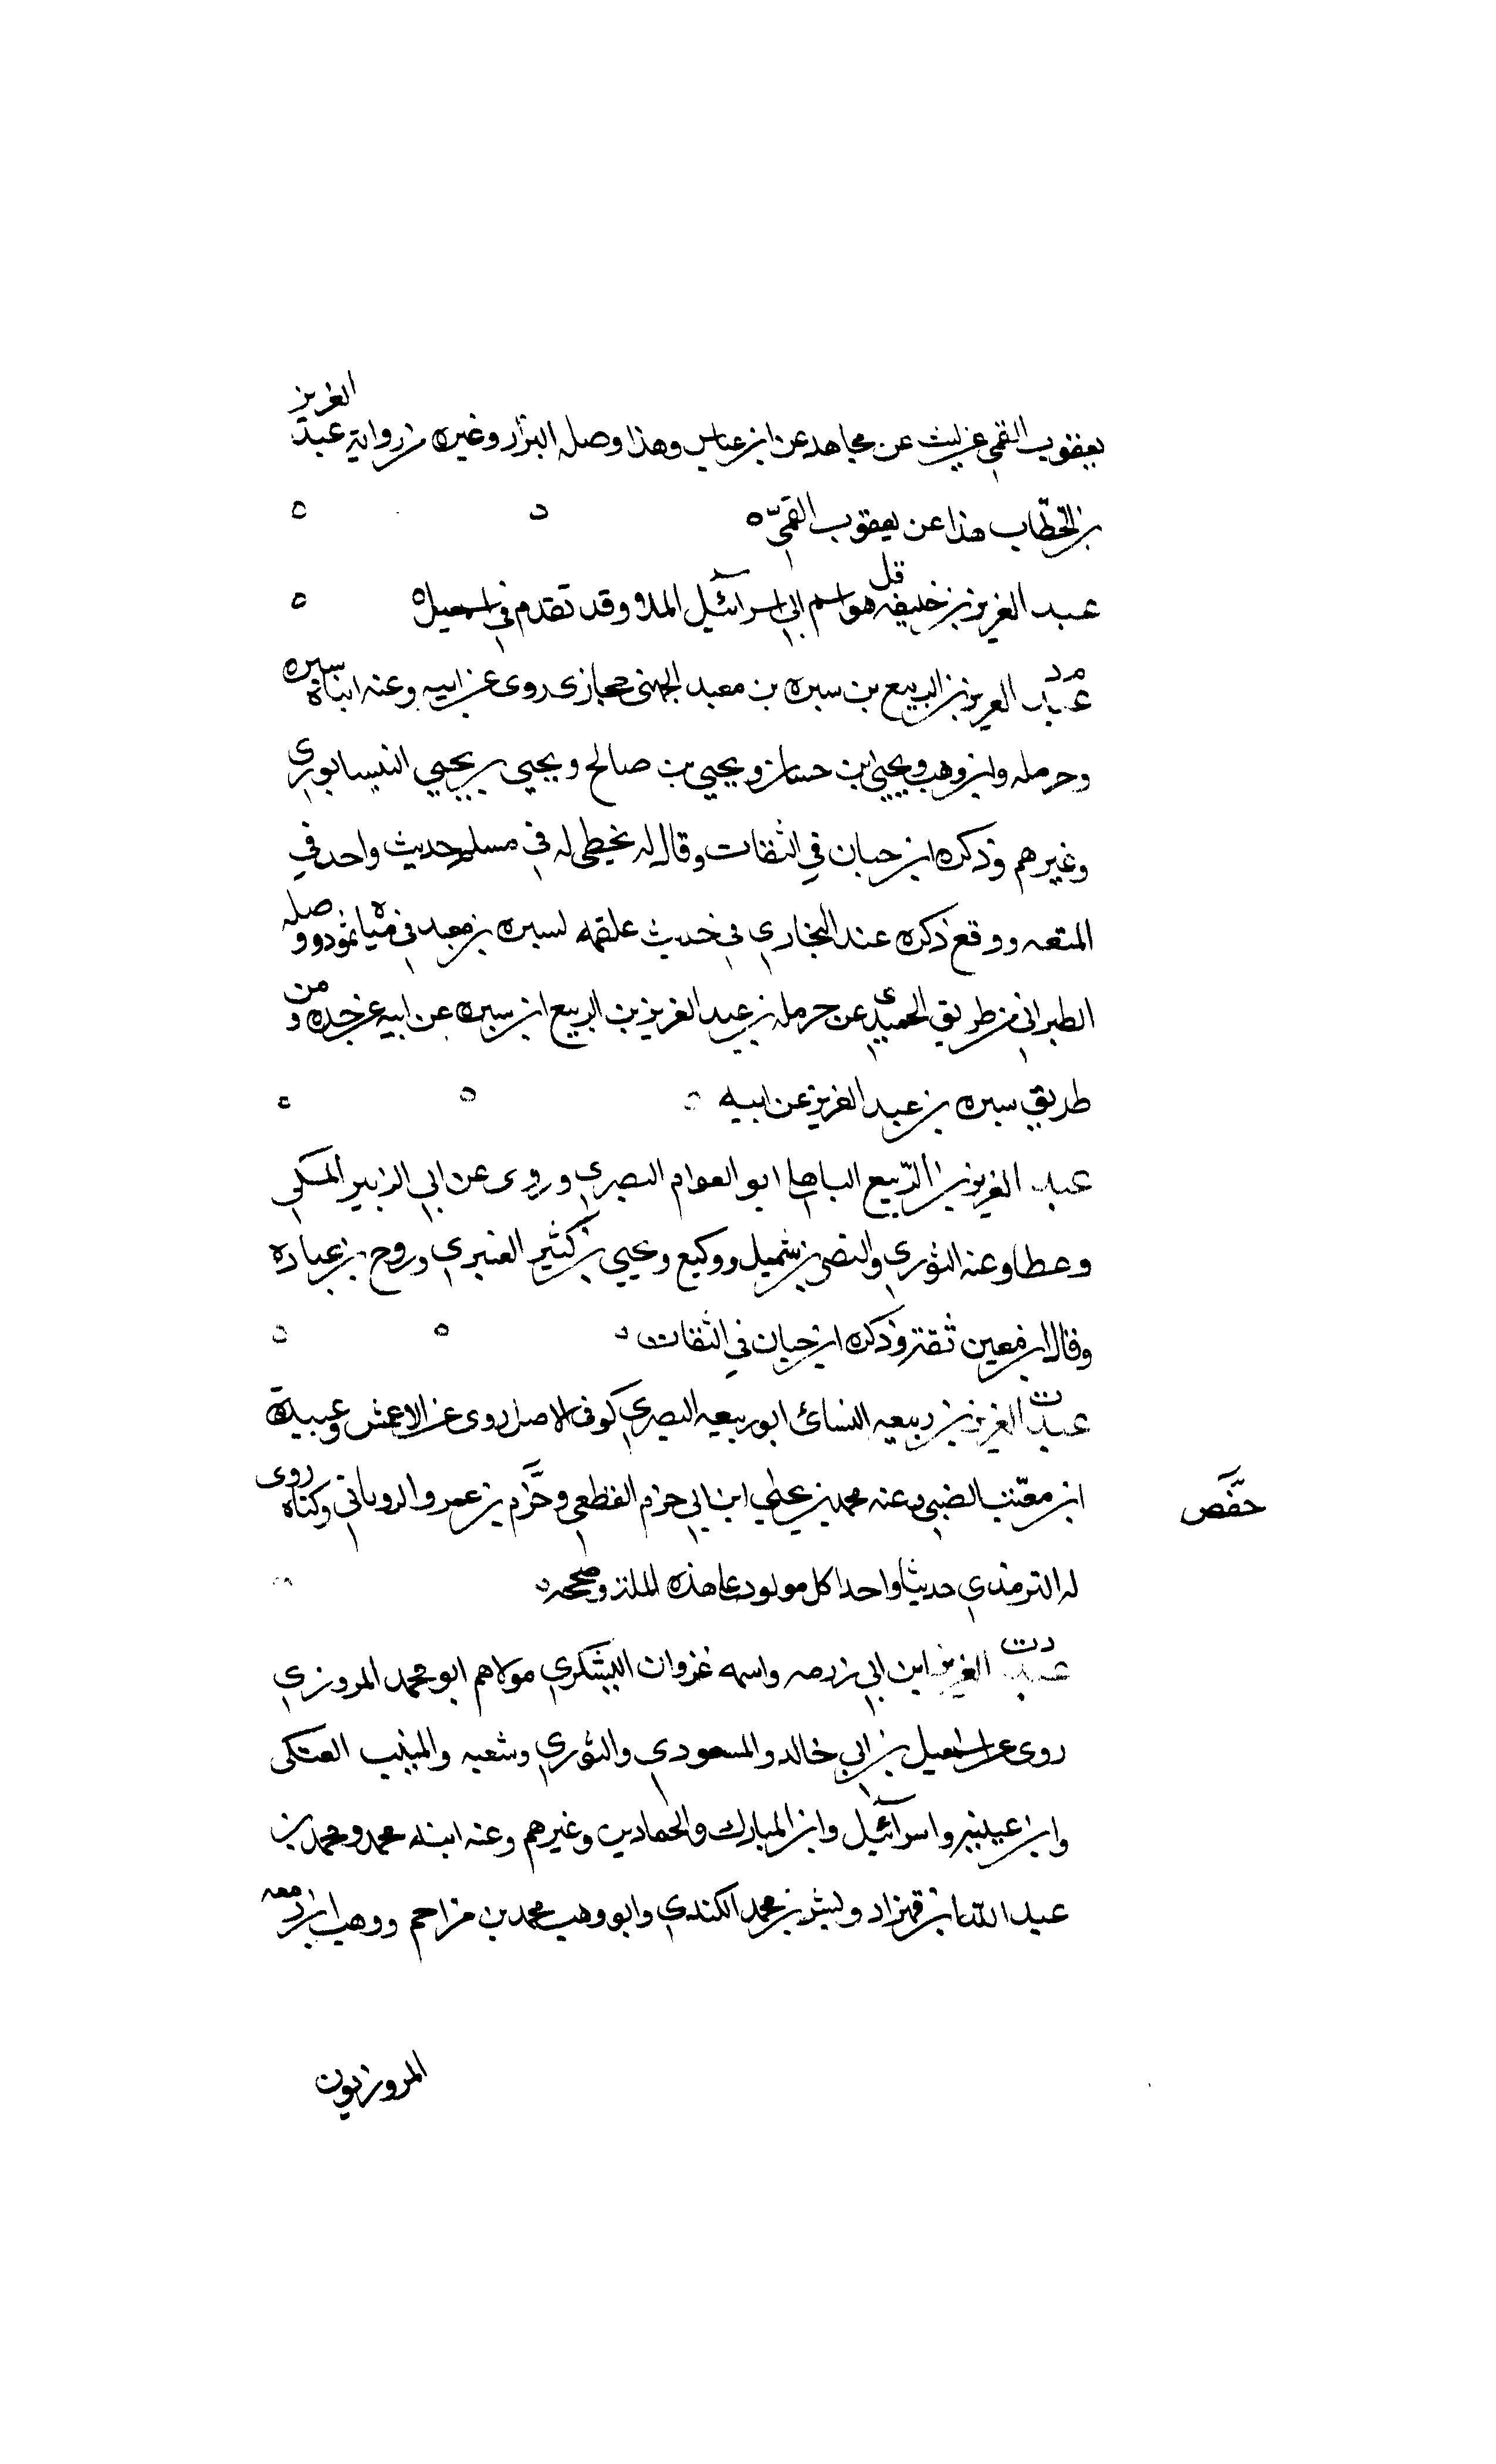 يعقوب القمي عن ليث عن مجاهد عن ابن عباس وهذا وصله البزار وغيره من رواية عبد العزيز
بن الخطاب هذا عن يعقوب القمي ه
عبد العزيز بن خليفه قل هو اسم ابي اسرائيل الملا وقد تقدم في اسمعيل ه
م د عبد العزيز بن الربيع بن سبره بن معبد الجهني حجازي روى عن ابيه وعنه ابناه سبره
وحرمله وابن وهب ويحيى بن حسان ويحيى بن صالح ويحيى بن يحيى النيسابوري
وغيرهم وذكره ابن حبان في الثقات وقال له يخطي له في مسلم حديث واحد في
المتعه ووقع ذكره عند البخاري في حديث علقه لسبره بن معبد في مياه ثمود ووصله
الطبراني من طريق الحميدي عن حرمله بن عبد العزيز بن الربيع ابن سبره عن ابيه عن جده ومن
طريق سبره بن عبد العزيز عن ابيه
عبد العزيز بن الربيع الباهلي ابو العوام البصري وروى عن ابي الزبير المكي
وعطا وعنه الثوري والنضر بن شميل ووكيع ويحيى بن كثير العنبري وروح بن عباده
وقال ابن معين ثقة وذكره ابن حبان في الثقات
ت عبد العزيز بن ربيعه النسائ ابو ربيعه البصري كوفي الاصل روى عن الاعمش وعبيدة
ابن معتب الضبي وعنه محمد بن علي ابن ابي حزم القطعي وحزم بن عمرو الروياني وكناه روى
حفص
له الترمذي حديثا واحدا كل مولود على هذه الملة وصححه
د ت عبد العزيز ابن ابي رزمه واسمه غزوان اليشكري مولاهم ابو محمد المروزي
روى عن اسمعيل بن ابي خالد والمسعودي والثوري وشعبه والمنيب العتكى
وابن عيينة واسرائيل وابن المبارك والحمادين وغيرهم وعنه ابنه محمد ومحمد بن
عبد الله ابن قهزاد وبشر بن محمد الكندي وابو وهب محمد بن مزاحم ووهب ابن زمعه
المروزيون